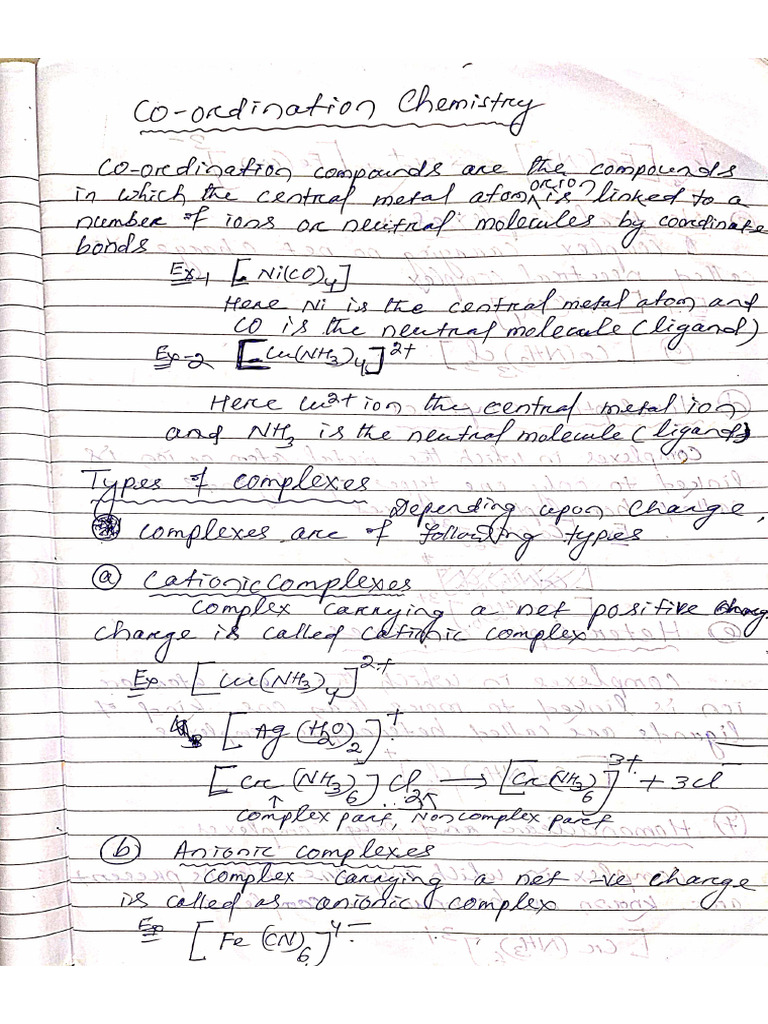 Co-ordination Chemistry
Co-ordination compounds are the compounds
in which the central metal atom or ion is linked to a
number of ions or neutral molecules by coordinate
bonds
Ex-1 [Ni(CO)4]
Here Ni is the central metal atom and
CO is the neutral molecule (ligand)
Ex-2 [Cu(NH3)4]2+
Here Cu2+ ion the central metal ion
and NH3 is the neutral molecule (ligand)
Types of complexes
Depending upon charge,
complexes are of following types
(a) Cationic Complexes
Complex carrying a net positive
charge is called cationic complex
Ex [Cu(NH3)4]2+
[Ag(H2O)2]+
[Cr(NH3)6]Cl3 → [Cr(NH3)6]3+ + 3Cl-
complex part, Noncomplex part
(b) Anionic complexes
Complex carrying a net -ve charge
is called as anionic complex
Ex [Fe(CN)6]4-